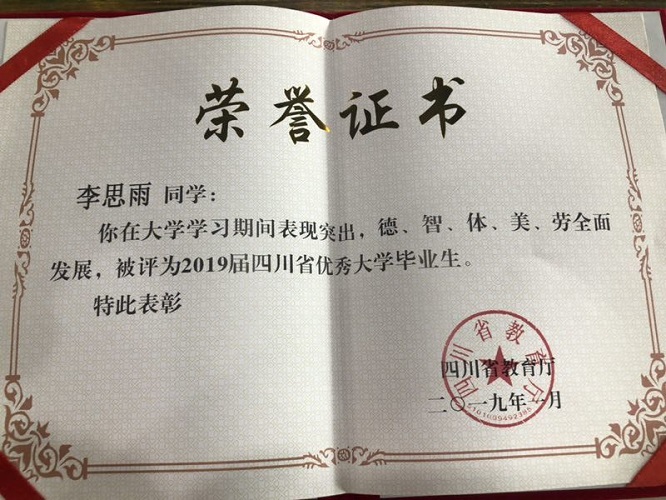 荣誉证书
李思雨 同学：
你在大学学习期间表现突出，德、智、体、美、劳全面
发展，被评为2019届四川省优秀大学毕业生。
特此表彰
四川省教育厅
四川省教育厅
二〇一九年一月